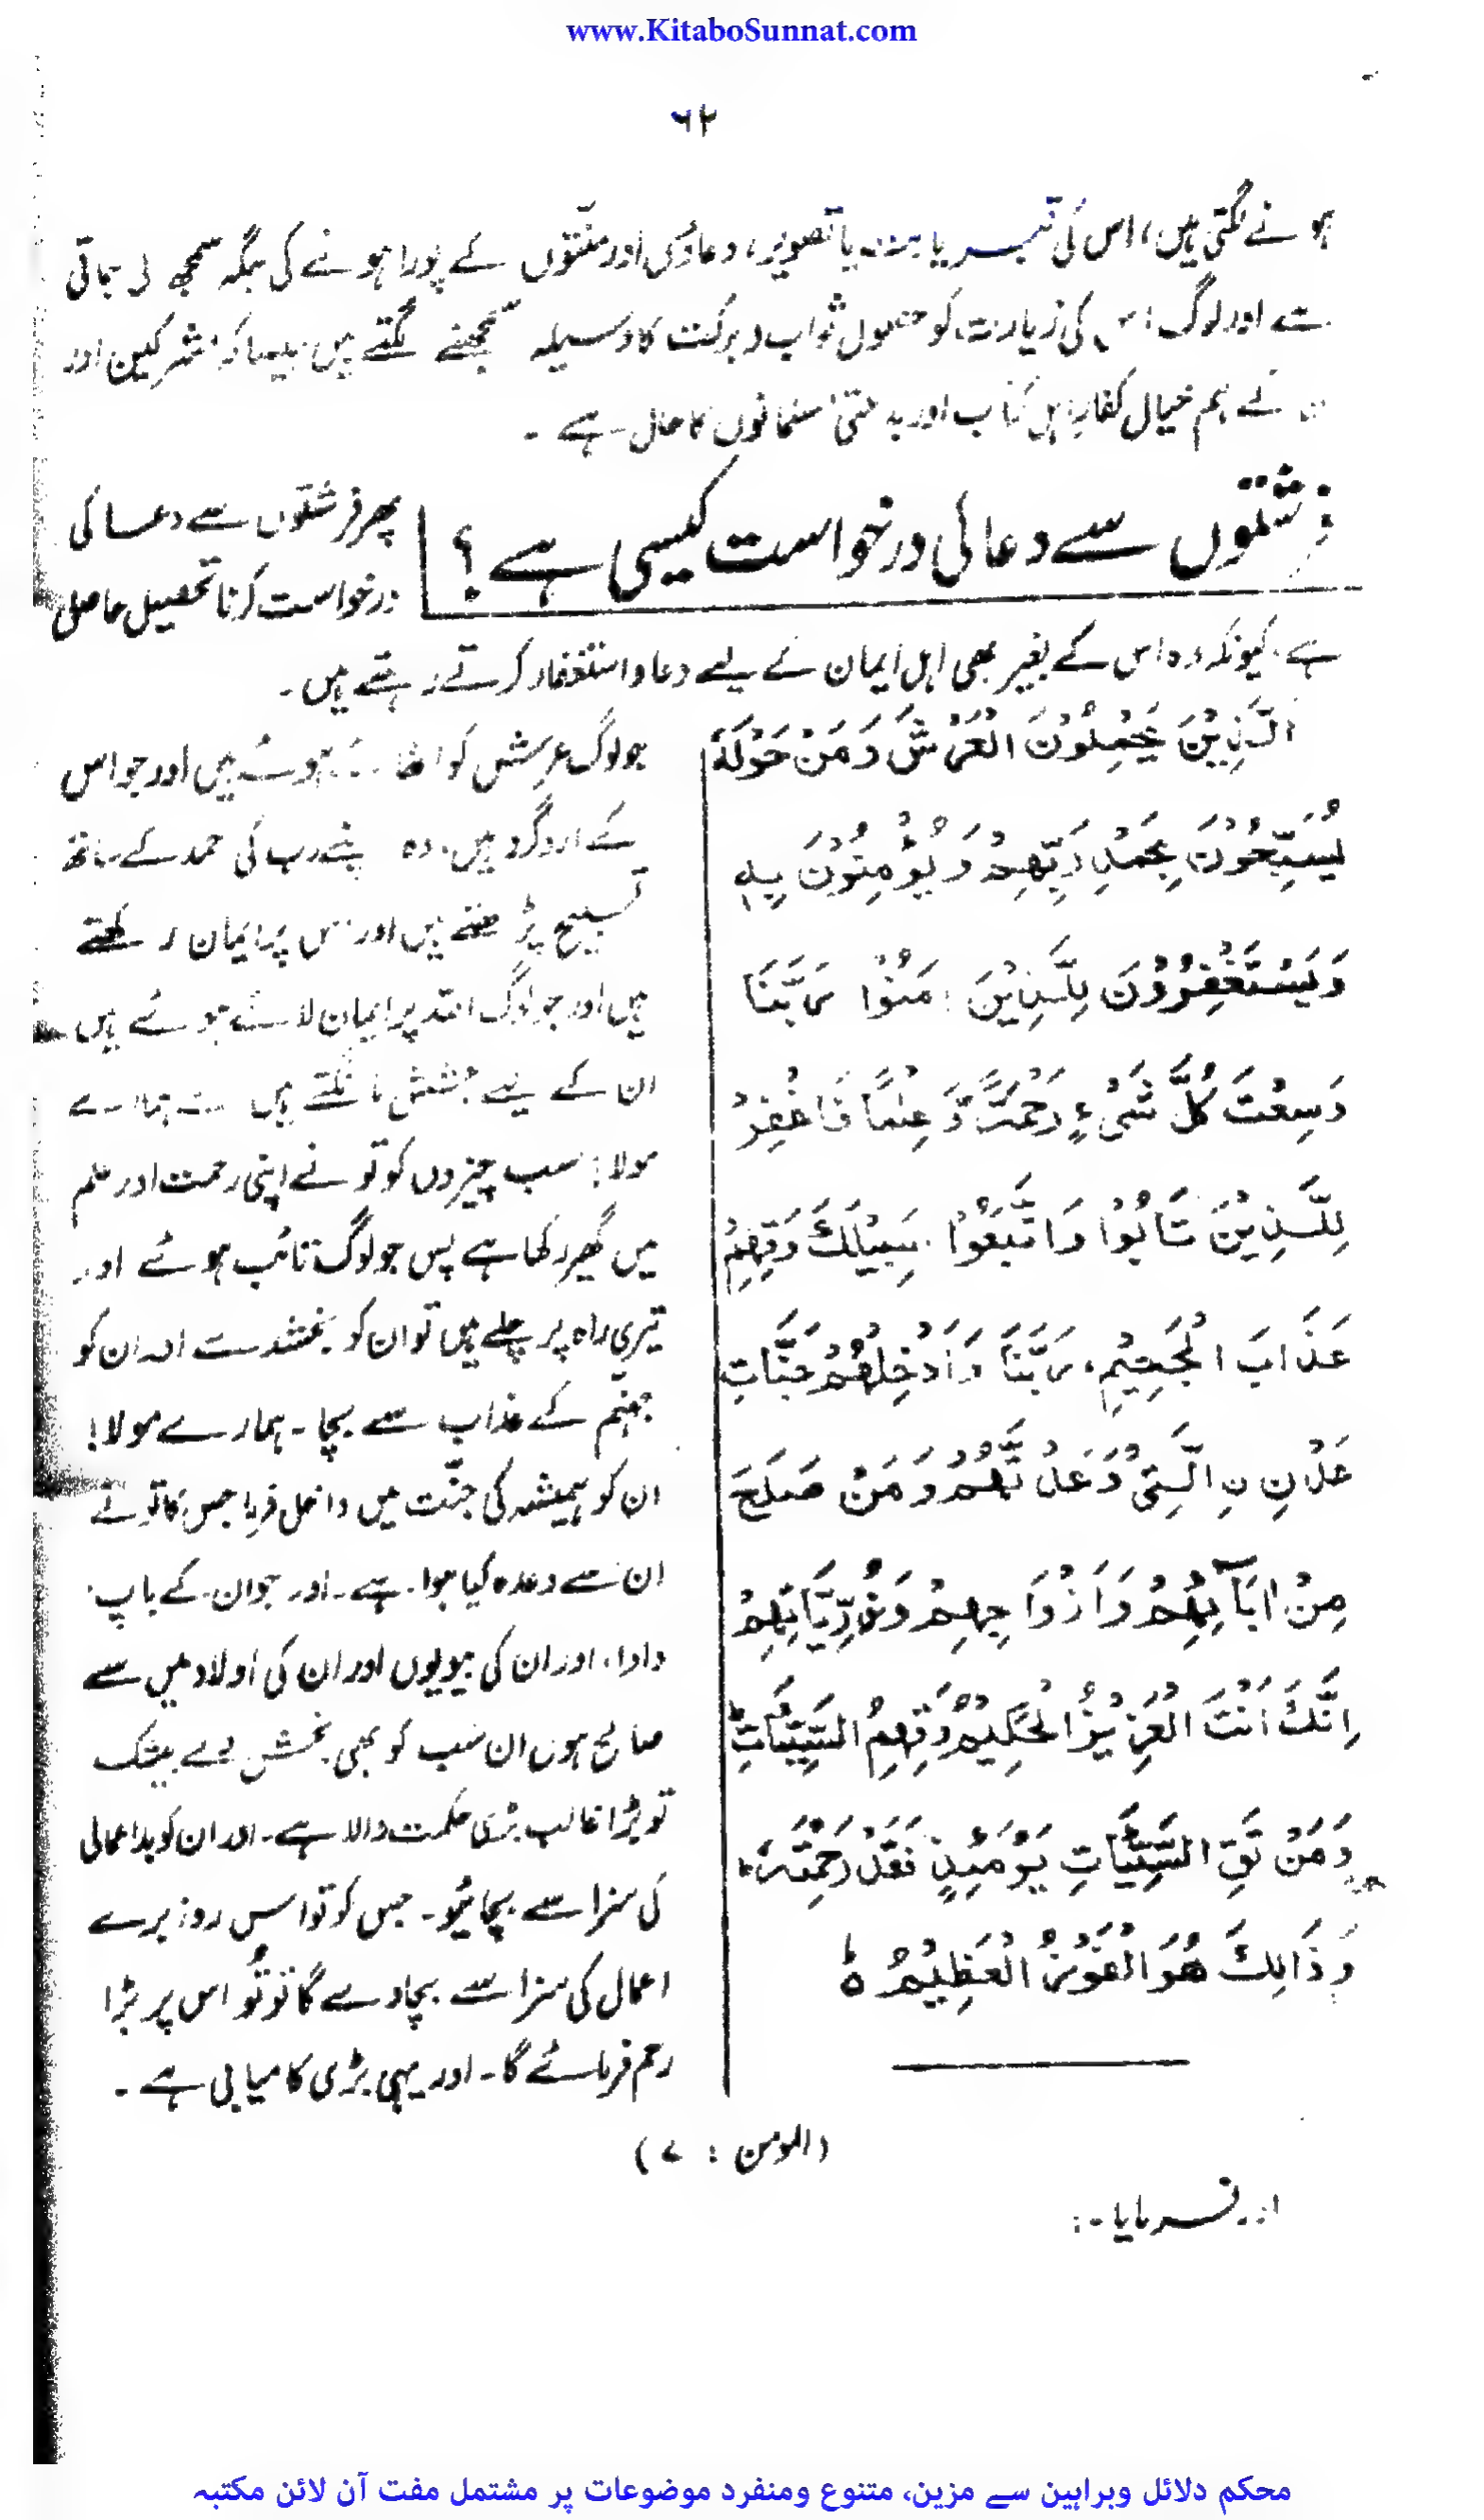 www.KitaboSunnat.com
۶۲
ہونے لگتی ہیں، اس کی یا تصویر، دعاؤں اور منتوں کے پورا ہونے کی جگہ سمجھ لی جاتی
ہے اور لوگ اس کی زیارت کو حصول ثواب و برکت کا وسیلہ سمجھنے لگتے ہیں جیسا کہ مشرکین اور
کے ہم خیال کفار اہل کتاب اور بدعتی مسلمانوں کا حال ہے ۔
فرشتوں سے دعا کی درخواست کیسی ہے؟
پھر فرشتوں سے دعا کی
درخواست کرنا تحصیل حاصل
ہے، کیونکہ وہ اس کے بغیر بھی اہل ایمان کے لیے دعا و استغفار کرتے رہتے ہیں۔
اَلَّذِیْنَ یَحْمِلُوْنَ الْعَرْشَ وَمَنْ حَوْلَهٗ
یُسَبِّحُوْنَ بِحَمْدِ رَبِّهِمْ وَیُؤْمِنُوْنَ بِهٖ
وَیَسْتَغْفِرُوْنَ لِلَّذِیْنَ اٰمَنُوْا رَبَّنَا
وَسِعْتَ كُلَّ شَیْءٍ رَحْمَةً وَّعِلْمًا فَاغْفِرْ
لِلَّذِیْنَ تَابُوْا وَاتَّبَعُوْا سَبِیْلَكَ وَقِهِمْ
عَذَابَ الْجَحِیْمِ، رَبَّنَا وَاَدْخِلْهُمْ جَنَّاتِ
عَدْنِ نِ الَّتِیْ وَعَدْتَّهُمْ وَمَنْ صَلَحَ
مِنْ اٰبَآئِهِمْ وَاَزْوَاجِهِمْ وَذُرِّیَّاتِهِمْ
اِنَّكَ اَنْتَ الْعَزِیْزُ الْحَكِیْمُ وَقِهِمُ السَّیِّئَاتِ ط
وَمَنْ تَقِ السَّیِّئَاتِ یَوْمَئِذٍ فَقَدْ رَحِمْتَهٗ،
وَذَالِكَ هُوَ الْفَوْزُ الْعَظِیْمُ ٥
جو لوگ عرش کو اٹھائے ہوئے ہیں اور جو اس
کے اردگرد ہیں، وہ اپنے رب کی حمد کے ساتھ
تسبیح پڑھتے ہیں اور اس پر ایمان رکھتے
ہیں اور جو لوگ اللہ پر ایمان لائے ہوئے ہیں
ان کے لیے بخشش مانگتے ہیں ہمارے
مولا! سب چیزوں کو تو نے اپنی رحمت اور علم
میں گھیر رکھا ہے پس جو لوگ تائب ہوئے اور
تیری راہ پر چلے ہیں تو ان کو بخشدے اور ان کو
جہنم کے عذاب سے بچا ۔ ہمارے مولا!
ان کو ہمیشہ کی جنّت میں داخل فرما جس کا تو نے
ان سے وعدہ کیا ہوا ہے ۔ اور جو ان کے باپ
دادا، اور ان کی بیویوں اور ان کی اولاد میں سے
صالح ہوں ان سب کو بھی بخش دے بیشک
تو بڑا غالب بڑی حکمت والا ہے ۔ اور ان کو بداعمالی
کی سزا سے بچائیو ۔ جس کو تو اس روز برے
اعمال کی سزا سے بچا دے گا تو تُو اس پر بڑا
رحم فرمائے گا ۔ اور یہی بڑی کامیابی ہے ۔
(المومن : ۷)
اور فرمایا ۔:
محکم دلائل وبراہین سے مزین، متنوع ومنفرد موضوعات پر مشتمل مفت آن لائن مکتبہ